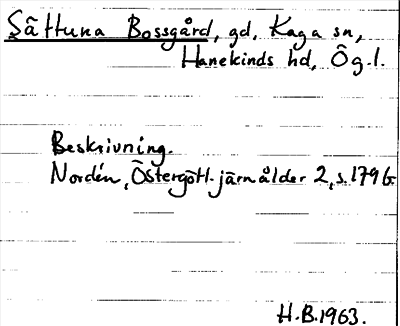 Sättuna Bossgård, gd, Kaga sn,
Hanekinds hd, Ög.l.
Beskrivning.
Nordén, Östergötl. järnålder 2, s. 179 f.
H.B. 1963.